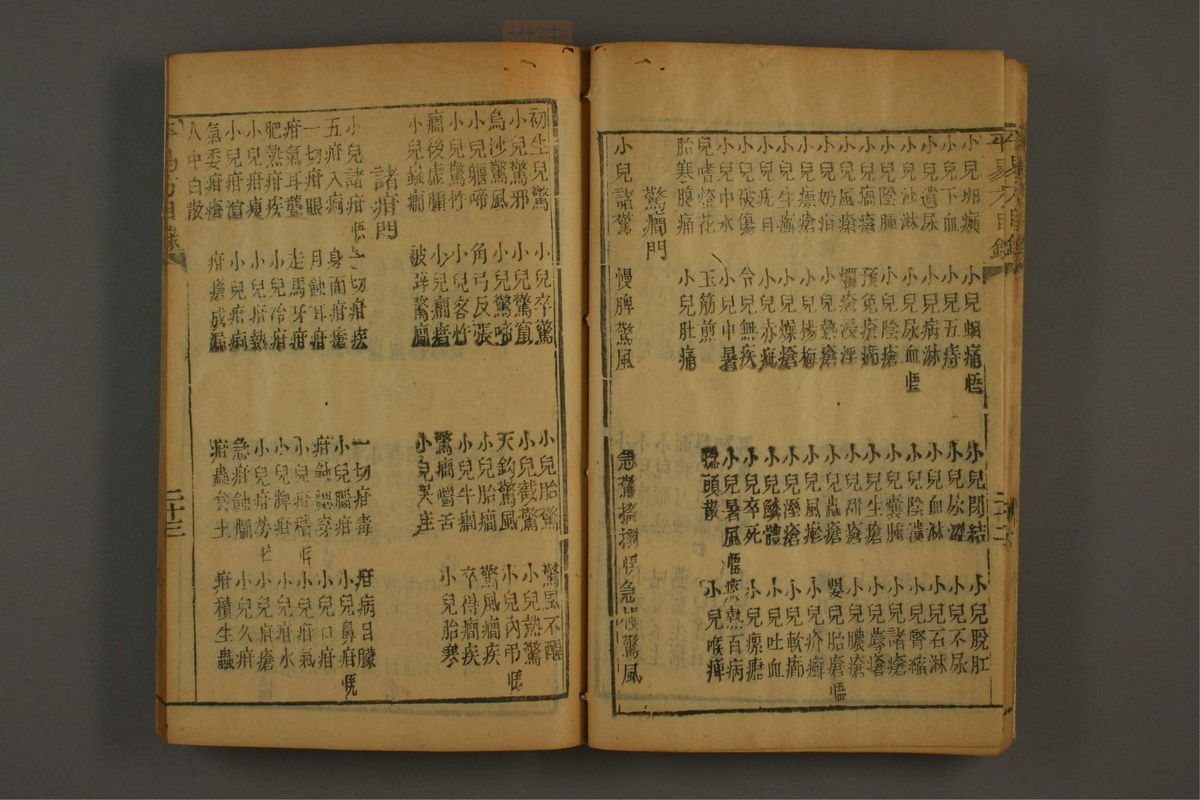 平易方目錄 二十二
小兒卵㿗 小兒蛔痛悟 小兒閉結 小兒脫肛
小兒下血 小兒五痔 小兒尿澀 小兒不尿
小兒遺尿 小兒病淋 小兒血淋 小兒石淋
小兒沙淋 小兒尿血悟 小兒陰潰 小兒腎縮
小兒陰腫 小兒陰瘡 小兒囊腫 小兒諸瘡
小兒瘡 預免瘡癤 小兒生瘡 小兒蓐瘡
小兒風瘡 爛瘡浸淫 小兒研瘡 小兒膿瘡
小兒奶泊 小兒熱瘡 小兒蟲瘡 嬰兒胎瘡悟
小兒瘭瘡 小兒楊梅 小兒風疹 小兒疥癬
小兒生瘡 小兒燥瘡 小兒溼瘡 小兒軟癤
小兒疣目 小兒赤疵 小兒鱗體 小兒吐血
小兒破傷 令兒無疾 小兒卒死 小兒瘰癧
小兒中水 小兒中暑 小兒暑風悟 痰熱百病
兒嗜燈花 玉筋煎 聰頭散 小兒喉痺
胎寒腹痛 小兒肚痛
驚癎門
小兒諸驚 慢脾驚風 急驚搐搦悟 急慢驚風
初生兒驚 小兒卒驚 小兒胎驚 驚風不醒
小兒驚邪 小兒驚 小兒截驚 小兒熱驚
烏沙驚風 小兒驚啼 天釣驚風 小兒內弔悟
小兒軀啼 角弓反張 小兒胎癎 驚風癎疾
小兒驚忤 小兒客忤 小兒牛癎 卒得癎疾
癎後虛腫 小兒癎瘥 驚癎嚼舌 小兒胎寒
小兒鹹癎 被驚癎 小兒哭痓
諸疳門
小兒諸疳悟 一切疳疾 一切疳毒 疳病目朦
五疳入痢 身面疳瘡 小兒腦疳 小兒鼻疳悟
一切疳眼 月蝕耳疳 疳蝕腮穿 小兒口疳
疳氣耳聾 走馬牙疳 小兒疳積悟 小兒疳氣
肥熱疳疾 小兒冷疳 小兒脾疳 小兒疳水
小兒疳瘦 小兒疳熱 小兒疳勞 小兒疳瘡
小兒疳瀉 小兒疳痢 急疳蝕爛 小兒久疳
氣委疳瘡 疳瘡成漏 疳蟲食土 疳積生蟲
人中白散
平易方目錄 二十三